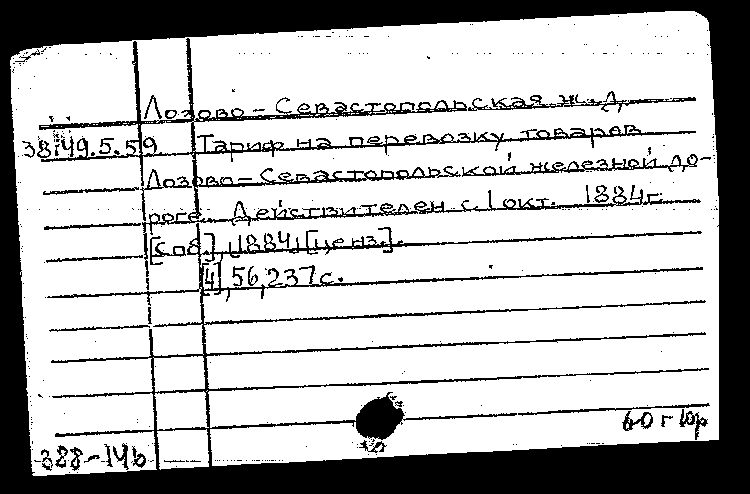 Лозово-Севастопольская ж.д.
38.49.5.59 Тариф на перевозку товаров
Лозово-Севастопольской железной до-
роге. Действителен с 1 окт. 1884г.
[Спб.], 1884, [ценз.].
[4], 56, 237 с.
388-14б